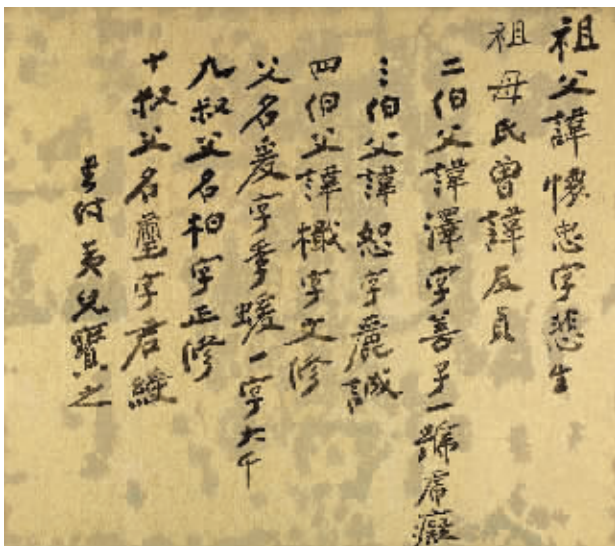 祖父諱懷忠字悲生
祖母氏曾諱友貞
二伯父諱澤字善子一號虎癡
三伯父諱恕字麗誠
四伯父諱檝字文修
父名爰字季蝯一字大千
九叔父名柏字正修
十叔父名壐字君綬
書付葆兒寶之